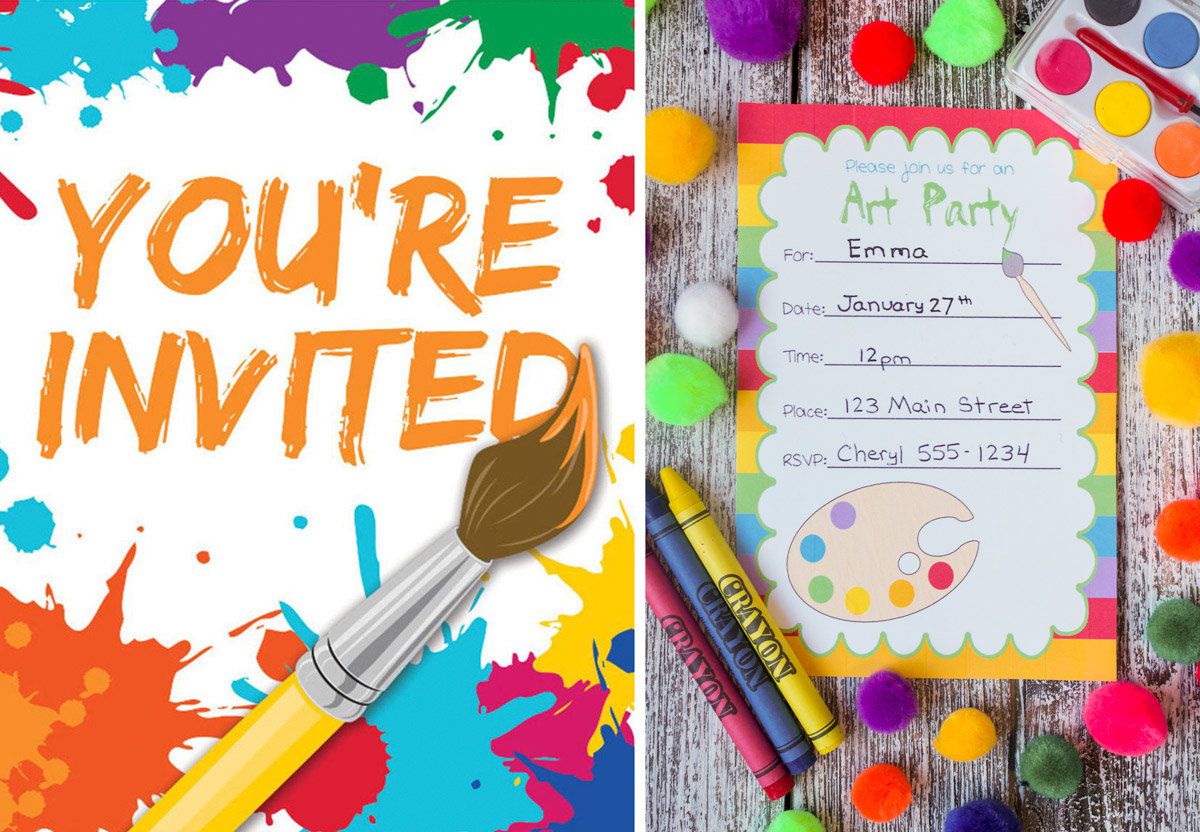 YOU'RE
INVITED
Please join us for an
Art Party
For: Emma
Date: January 27th
Time: 12pm
Place: 123 Main Street
RSVP: Cheryl 555-1234
CRAYON
CRAYON
CRAYON